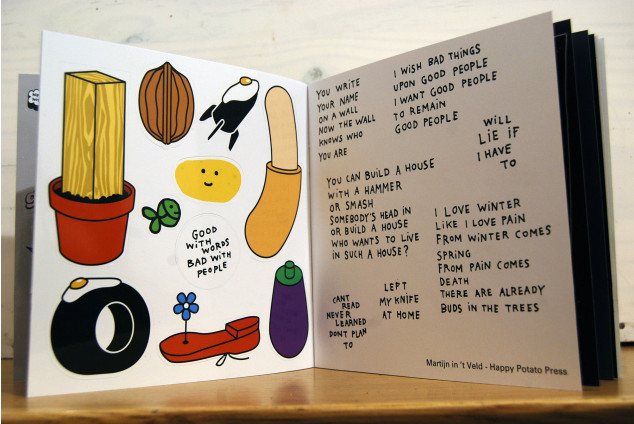 GOOD
WITH
WORDS
BAD WITH
PEOPLE
YOU WRITE
YOUR NAME
ON A WALL
NOW THE WALL
KNOWS WHO
YOU ARE
I WISH BAD THINGS
UPON GOOD PEOPLE
I WANT GOOD PEOPLE
TO REMAIN
GOOD PEOPLE
WILL
LIE IF
I HAVE
TO
YOU CAN BUILD A HOUSE
WITH A HAMMER
OR SMASH
SOMEBODY'S HEAD IN
OR BUILD A HOUSE
WHO WANTS TO LIVE
IN SUCH A HOUSE?
I LOVE WINTER
LIKE I LOVE PAIN
FROM WINTER COMES
SPRING
FROM PAIN COMES
DEATH
THERE ARE ALREADY
BUDS IN THE TREES
CANT
READ
NEVER
LEARNED
DONT PLAN
TO
LEFT
MY KNIFE
AT HOME
Martijn in 't Veld - Happy Potato Press